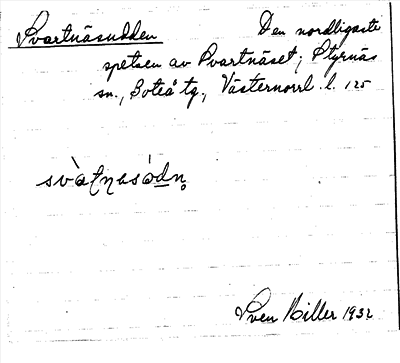 Svartnäsudden Den nordligaste
spetsen av Svartnäset; Styrnäs
sn., Boteå tg., Västernorrl. l. 125
Sven Miller 1932